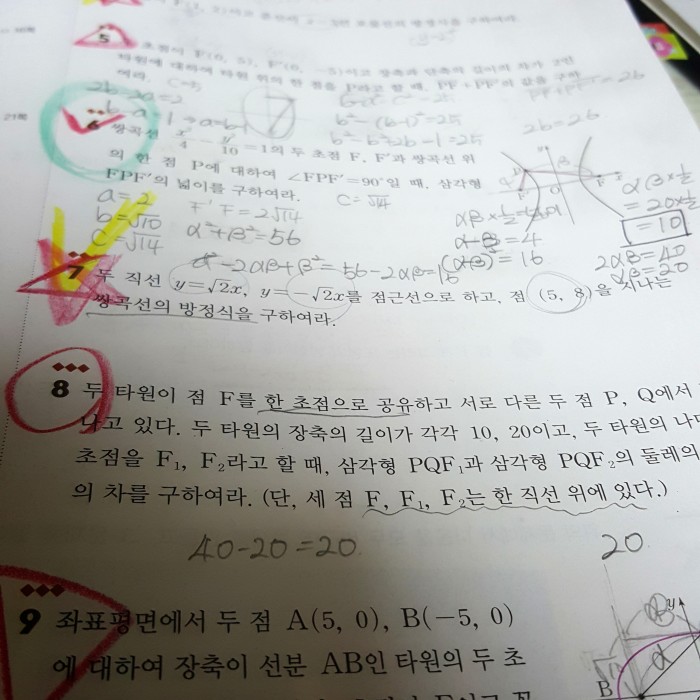 5
초점이 F(0, 5), F′(0, −5)이고 장축과 단축의 길이의 차가 2인
타원에 대하여 타원 위의 한 점을 P라고 할 때, PF+PF′의 값을 구하
여라.
2b-2a=2
b-a=1 → a=b-1
b²-(b-1)²=25
b²-b²+2b-1=25
2b=26
21쪽
6
쌍곡선 x²/4 − y²/10 =1의 두 초점 F, F′과 쌍곡선 위
의 한 점 P에 대하여 ∠FPF′=90°일 때, 삼각형
FPF′의 넓이를 구하여라.
C=√14
a=2
b=√10
c=√14
F'F=2√14
α²+β²=56
α-β=4
(α-β)²=16
α²-2αβ+β²=56-2αβ=16
αβ×½
=20×½
=10
2αβ=40
αβ=20
7 두 직선 y=√2x, y=−√2x를 점근선으로 하고, 점 (5, 8)을 지나는
쌍곡선의 방정식을 구하여라.
8 두 타원이 점 F를 한 초점으로 공유하고 서로 다른 두 점 P, Q에서
나고 있다. 두 타원의 장축의 길이가 각각 10, 20이고, 두 타원의 나머
초점을 F₁, F₂라고 할 때, 삼각형 PQF₁과 삼각형 PQF₂의 둘레의
의 차를 구하여라. (단, 세 점 F, F₁, F₂는 한 직선 위에 있다.)
40-20=20
20
9 좌표평면에서 두 점 A(5, 0), B(−5, 0)
에 대하여 장축이 선분 AB인 타원의 두 초
y
B